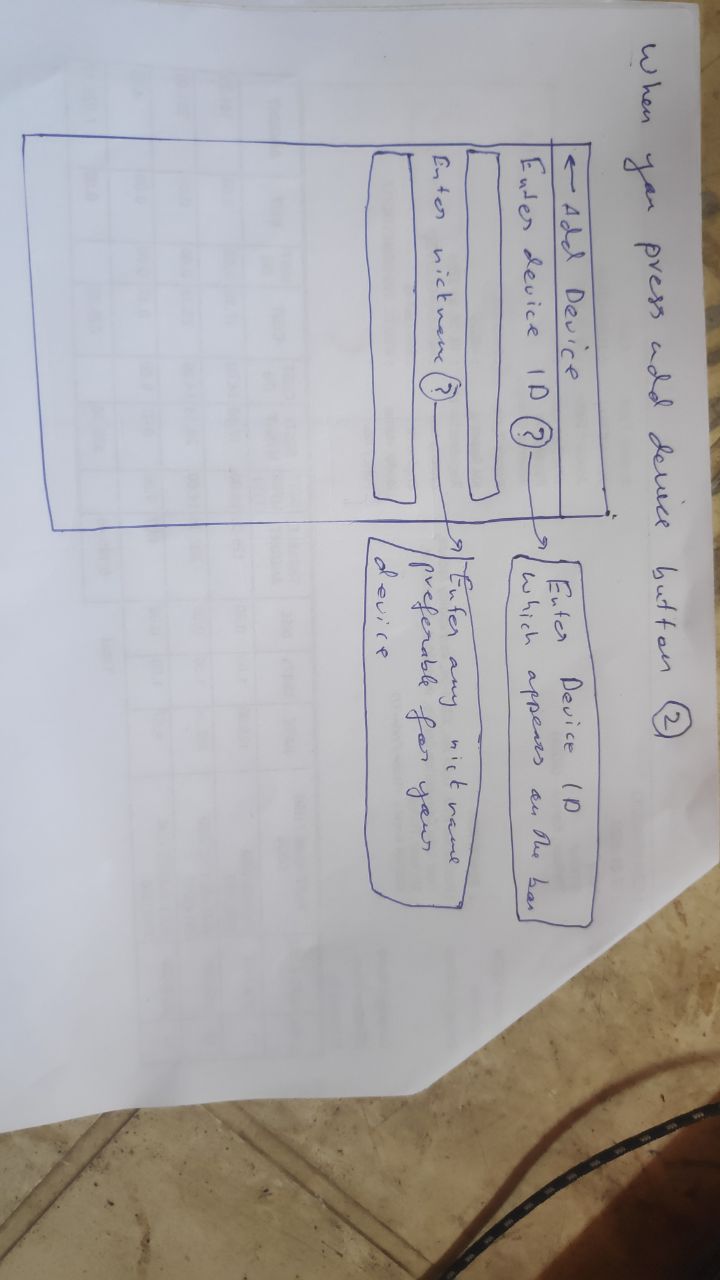 When you press add device button ②
← Add Device
Enter device ID ?
Enter Device ID
which appears on the box
Enter nickname ?
Enter any nickname
preferable for your
device